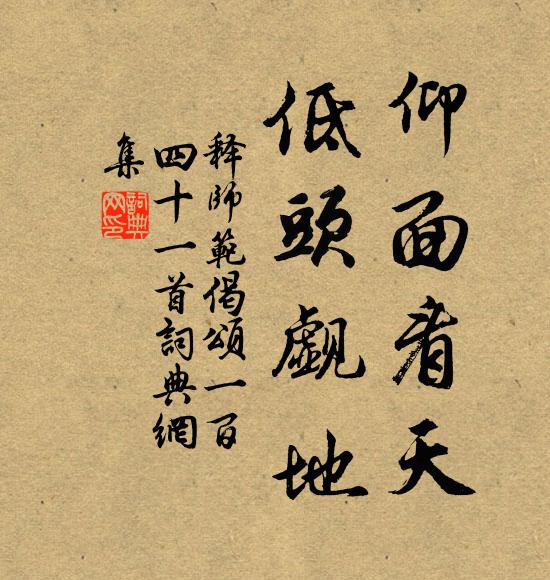 仰面看天
低頭覷地
釋師範偈頌一百
四十一首詞典網
集
詞典
网印